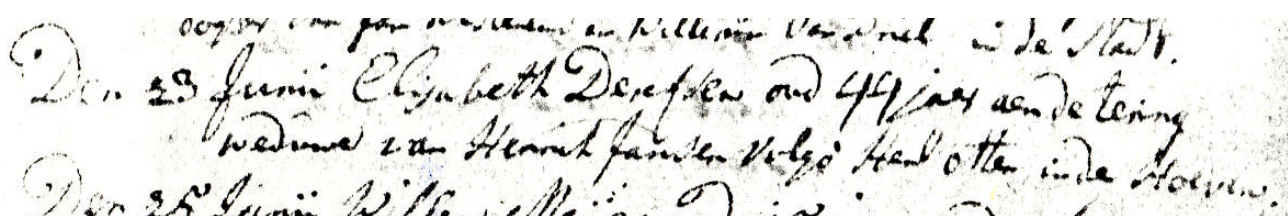 van Jan en Willemin Van Driel in de Stadt.
Den 23 Junii Elijsabeth Derksen oud 44 jaer aen de tering
weduwe van Henrik Jansen vulgo Hen Otten, in de Hoeven.
Den 25 Junii Will